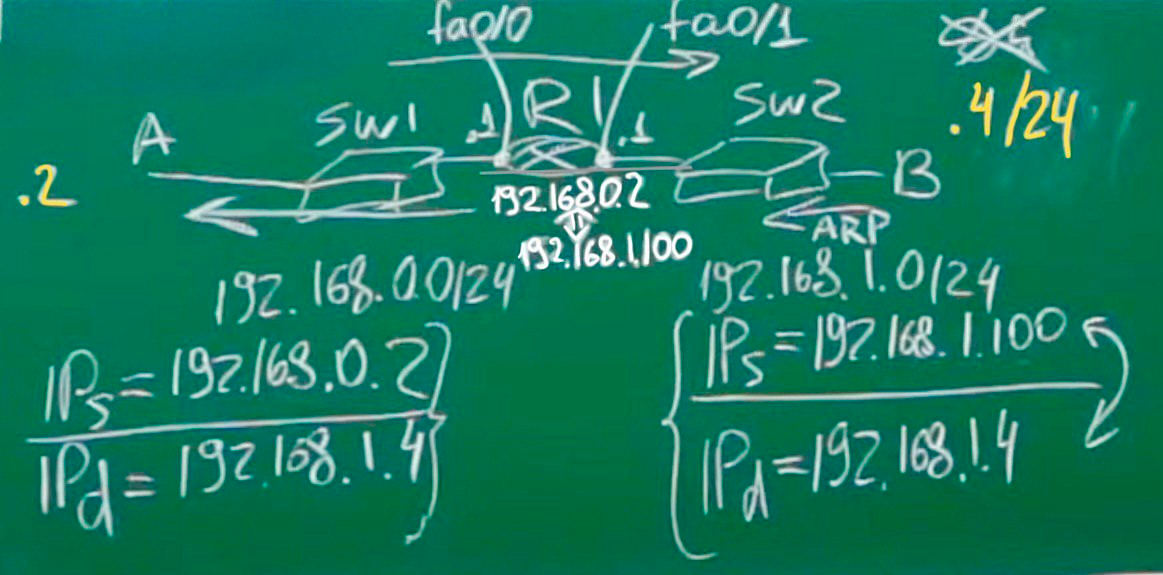 fa0/0 fa0/1
A SW1 .1 R1 .1 SW2 .4/24
.2 B
192.168.0.2
ARP
192.168.1.100
192.168.0.0/24 192.168.1.0/24
IPs = 192.168.0.2 IPs = 192.168.1.100
IPd = 192.168.1.4 IPd = 192.168.1.4